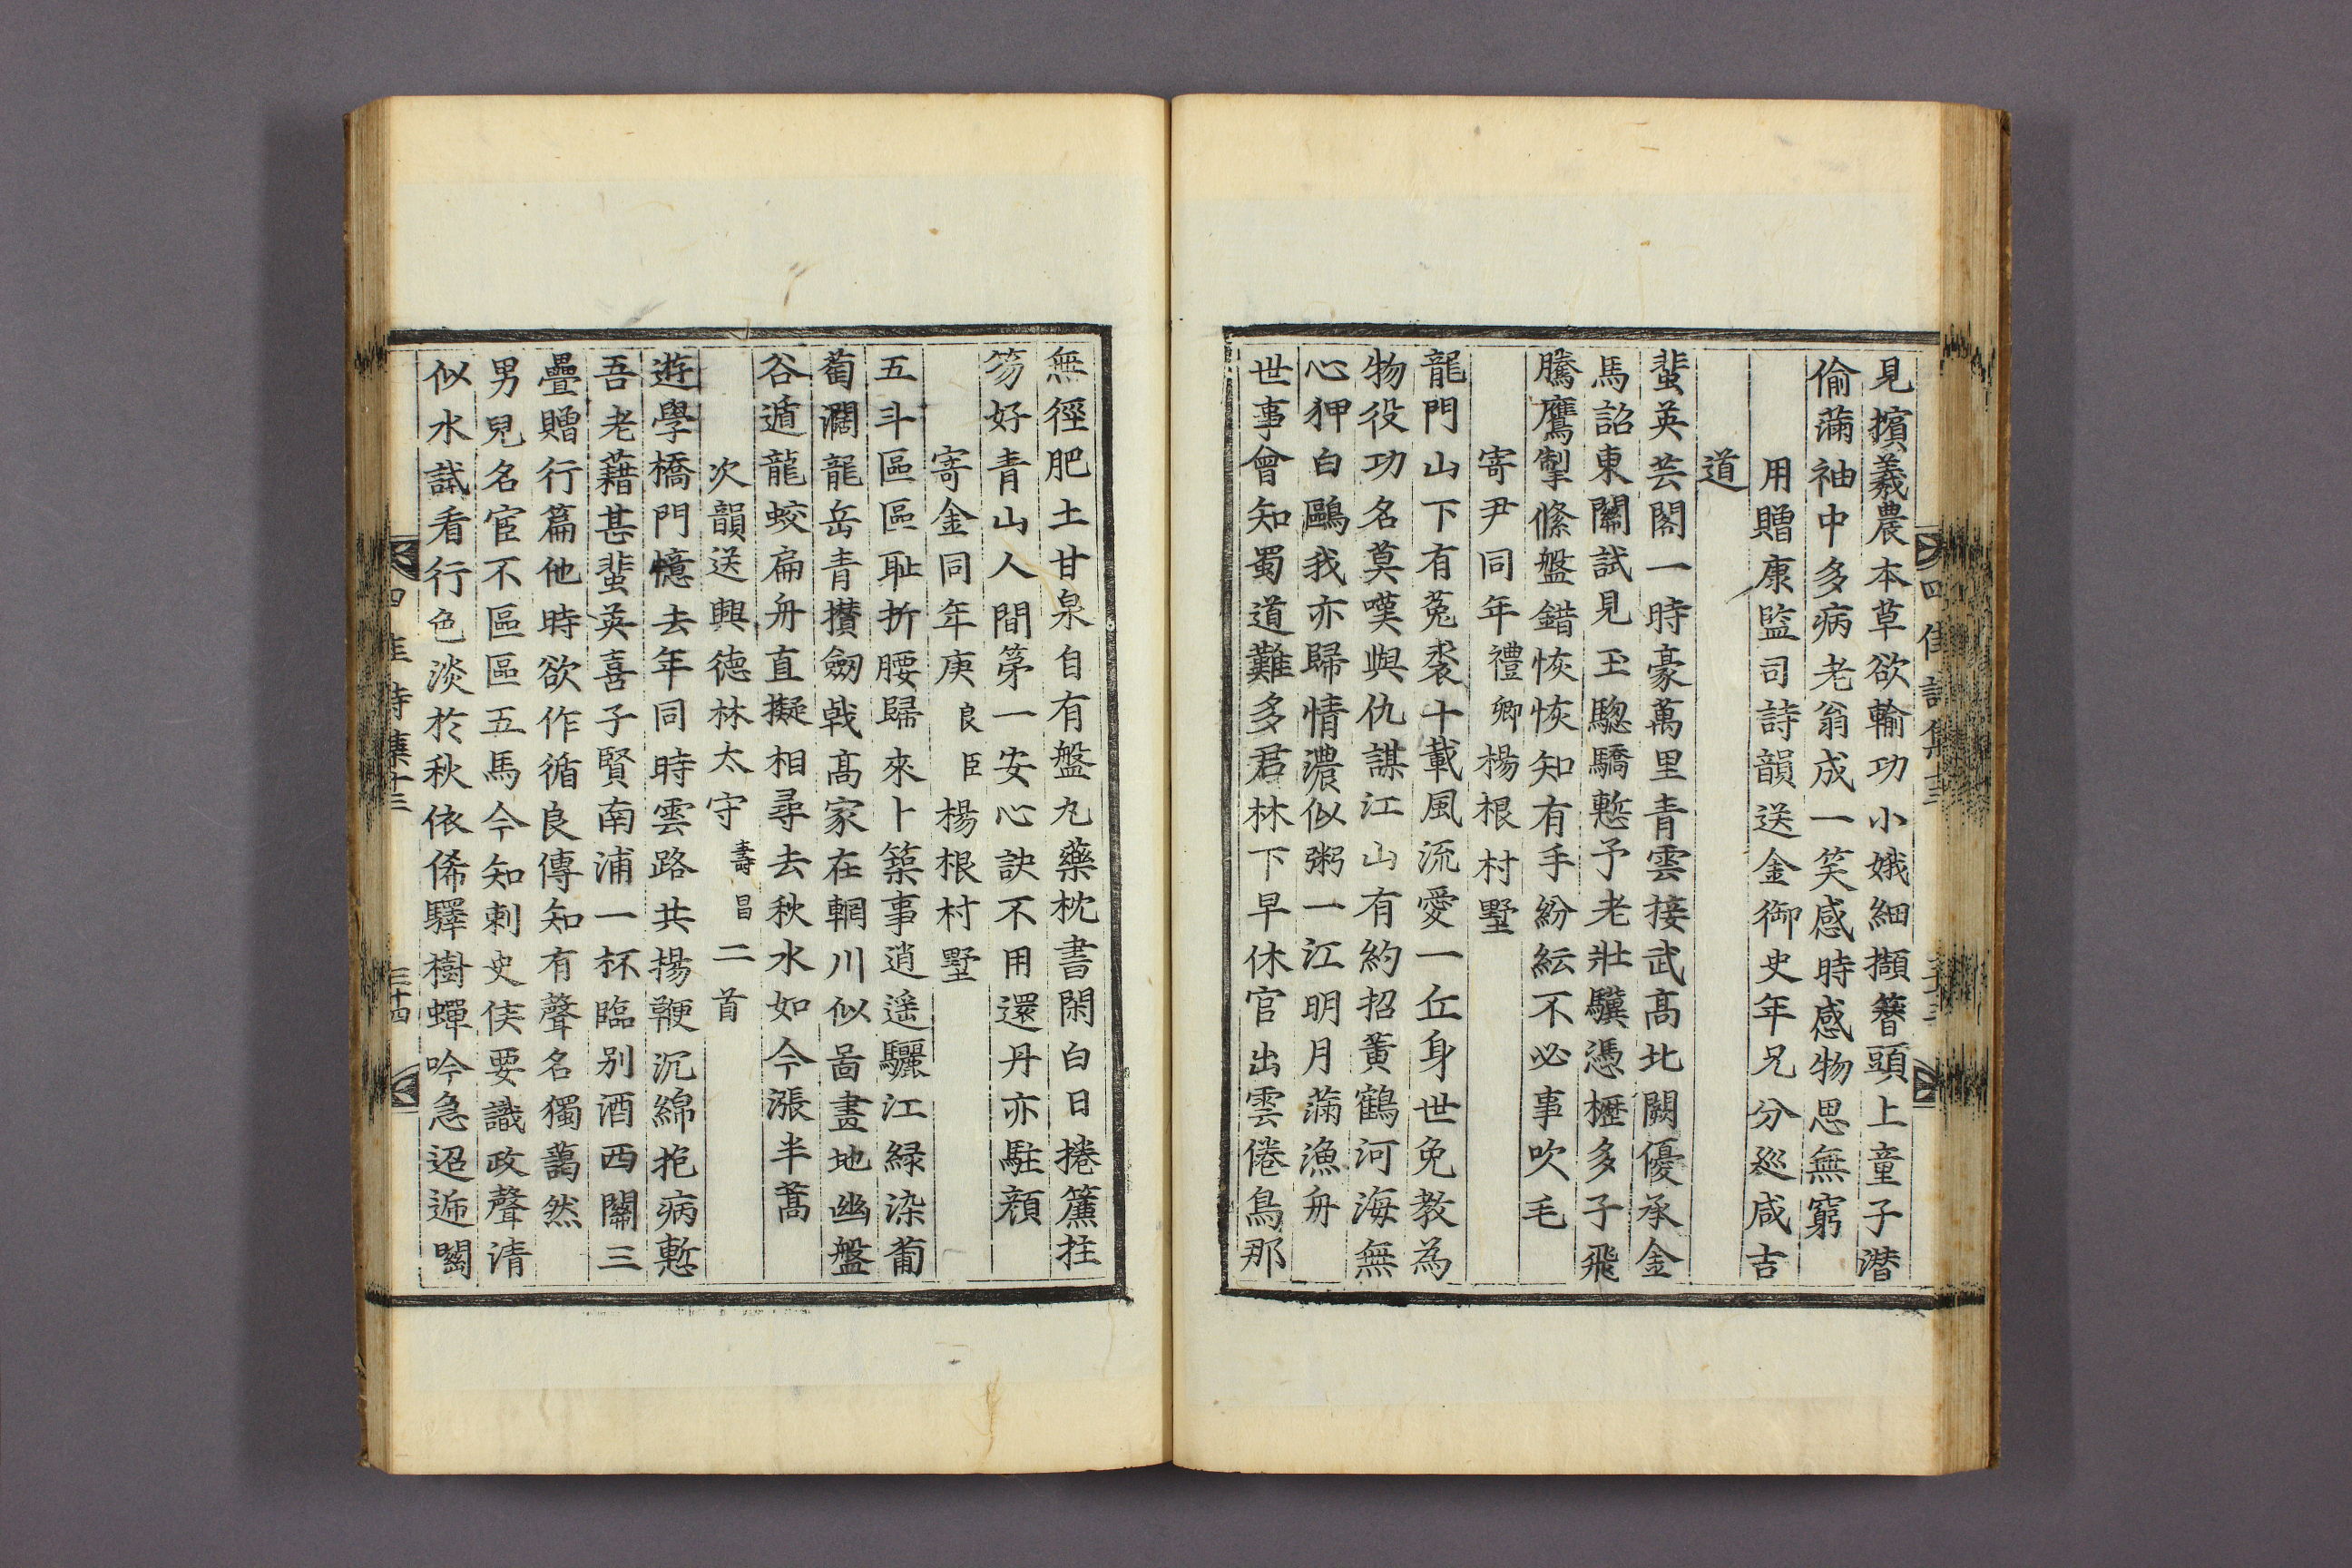 見擯羲農本草欲輸功小娥細擷簪頭上童子潛
偷滿袖中多病老翁成一笑感時感物思無窮
用贈康監司詩韻送金御史年兄分廵咸吉
道
蜚英芸閣一時豪萬里青雲接武髙北闕優承金
馬詔東關試見玉驄驕慙予老壯驥憑櫪多子飛
騰鷹掣絛盤錯恢恢知有手紛紜不必事吹毛
寄尹同年禮卿楊根村墅
龍門山下有菟裘十載風流愛一丘身世免教為
物役功名莫嘆與仇謀江山有約招黃鶴河海無
心狎白鷗我亦歸情濃似粥一江明月滿漁舟
世事曾知蜀道難多君林下早休官出雲倦鳥那
四佳詩集十三
無徑肥土甘泉自有盤丸藥枕書閑白日捲簾拄
笏好青山人間第一安心訣不用還丹亦駐顔
寄金同年庚良臣楊根村墅
五斗區區耻折腰歸來卜築事逍遥驪江緑染葡
萄濶龍岳青攅劒戟髙家在輞川似啚畫地幽盤
谷遁龍蛟扁舟直擬相尋去秋水如今漲半蒿
次韻送興德林太守壽昌二首
遊學橋門憶去年同時雲路共揚鞭沉綿抱病慙
吾老藉甚蜚英喜子賢南浦一杯臨别酒西關三
疊贈行篇他時欲作循良傳知有聲名獨藹然
男兒名宦不區區五馬今知刺史侯要識政聲清
似水試看行色淡於秋依俙驛樹蟬吟急迢遞
四佳詩集十三
三十四